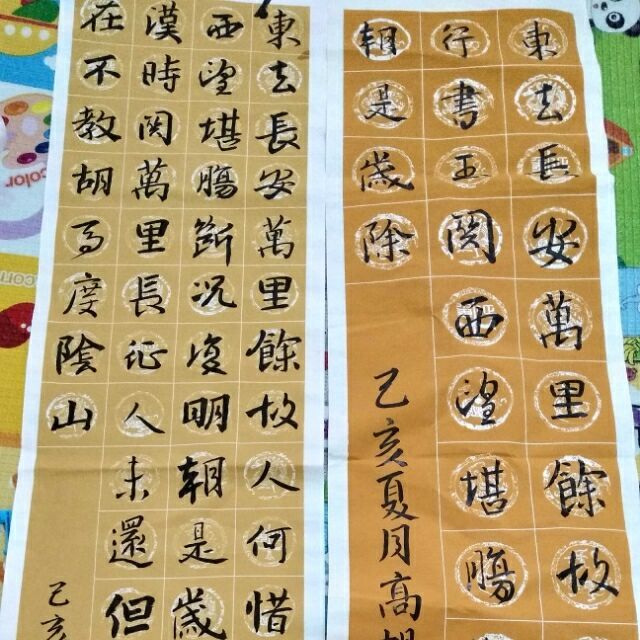 東去長安萬里餘故
行書玉関西望堪腸
朝是歲除
己亥夏月高
東去長安萬里餘故人何惜
西望堪腸斷況復明朝是歲
漢時関萬里長征人未還但
在不教胡馬度陰山
己亥